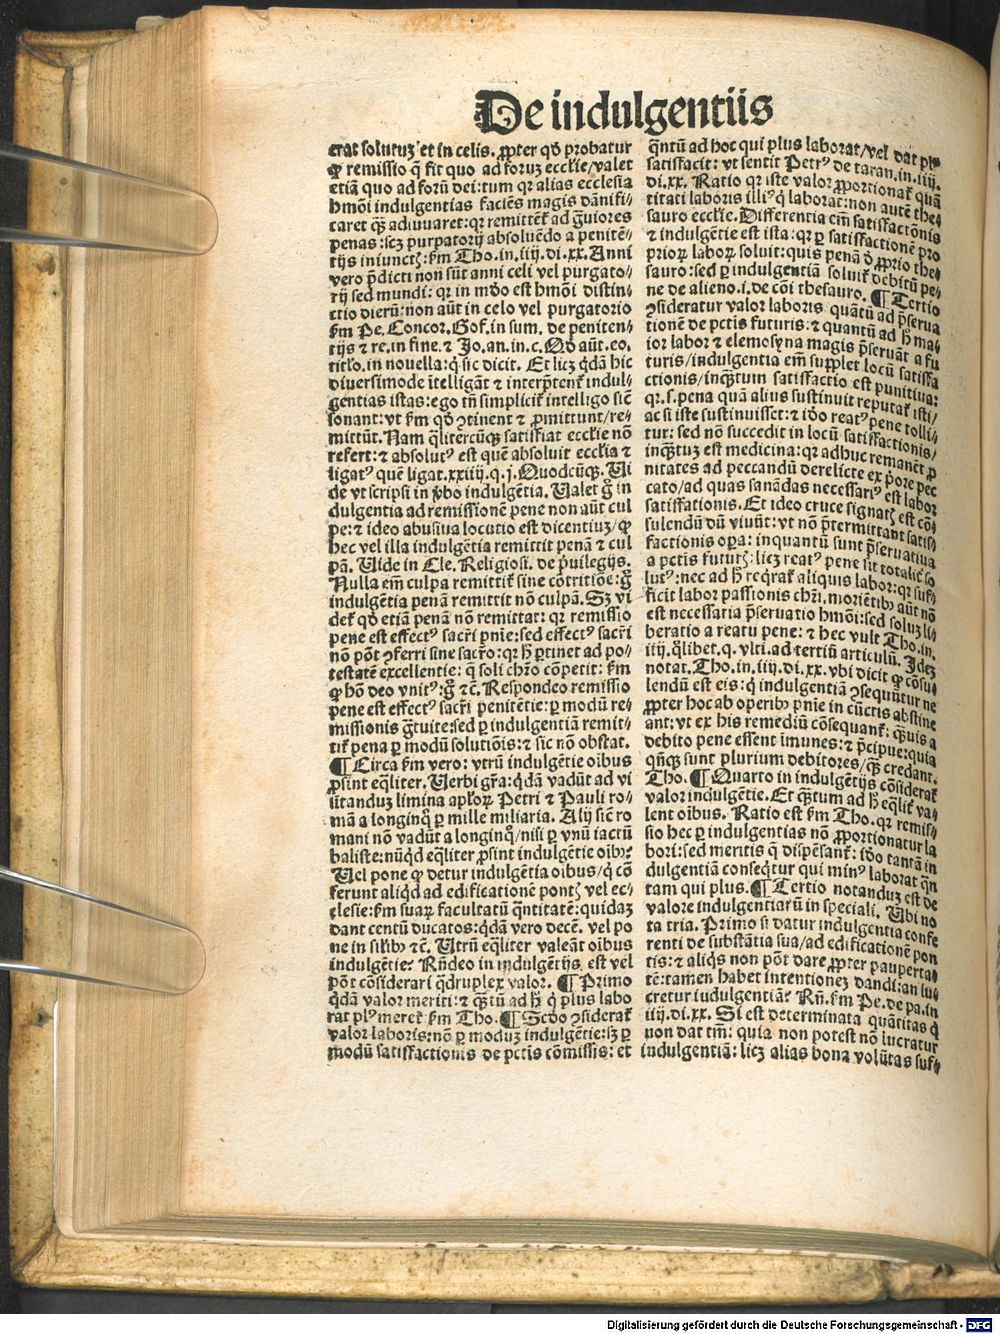 De indulgentiis
erat solutuʒ et in celis. ꝓpter qd̄ probatur
ꝙ remissio q̄ fit quo ad foruʒ eccl̄ie/valet
etiā quo ad forū dei: tum qꝛ alias ecclesia
hmōi indulgentias faciēs magis dānifi⸗
caret qꝫ adiuuaret: qꝛ remittēt̄ ad ḡuiores
penas: scꝫ purgatorij absoluēdo a penitē⸗
tijs iniunctꝭ: ẜm Tho. in. iiij. di. xx. Anni
vero p̄dicti non sūt anni celi vel purgato⸗
rij sed mundi: qꝛ in mōo est hmōi distin⸗
ctio dierū: non aūt in celo vel purgatorio
ẜm Pe. Concor. Gof. in sum. de peniten⸗
tijs ⁊ re. in fine. ⁊ Jo. an. in. c. Qd̄ aūt. eo.
titlo. in nouella: q̇ sic dicit. Et licꝫ q̇dā hic
diuersimode ītelligāt ⁊ interp̄tent̄ indul⸗
gentias istas: ego tn̄ simplicit̄ intelligo sic̄
sonant: vt ẜm qd̄ ꝯtinent ⁊ ꝓmittunt/re⸗
mittūt. Nam q̄litercūqꝫ satisfiat eccl̄ie nō
refert: ⁊ absolutꝰ est quē absoluit eccl̄ia ⁊
ligatꝰ quē ligat. xxiiij. q. j. Quodcūqꝫ. Ui
de vt scripsi in v̄bo indulgētia. Ualet g̊ in
dulgentia ad remissionē pene non aūt cul
pe: ⁊ ideo abusiua locutio est dicentiuʒ/ꝙ
hec vel illa indulgētia remittit penā ⁊ cul
pā. Uide in Cle. Religiosi. de p̄uilegijs.
Nulla em̄ culpa remittit̄ sine cōtritiōe: g̊
indulgētia penā remittit nō culpā. Sʒ vi
det̄ qd̄ etiā penā nō remittat: qꝛ remissio
pene est effectꝰ sacr̄i pn̄ie: sed effectꝰ sacr̄i
nō pōt ꝯferri sine sacr̄o: qꝛ h̄ ꝑtinet ad po⸗
testatē excellentie: q̄ soli chr̄o cōpetit: ẜm
ꝙ hō deo vnitꝰ: g̊ ⁊c̄. Respondeo remissio
pene est effectꝰ sacr̄i penitētie: ꝑ modū re⸗
missionis g̈tuite: sed ꝑ indulgentiā remit⸗
tit̄ pena ꝑ modū solutiōis: ⁊ sic nō obstat.
¶ Circa ẜm vero: vtrū indulgētie oibus
ꝓsint eq̄liter. Uerbi gr̄a: q̇dā vadūt ad vi
sitanduʒ limina apl̄oꝝ Petri ⁊ Pauli ro⸗
mā a longinq̊ ꝑ mille miliaria. Alij sic̄ ro
mani nō vadūt a longinq̊/nisi ꝑ vnū iactū
baliste: nūqd̄ eq̄liter ꝓsint indulgētie oibꝰ?
Uel pone ꝙ detur indulgētia oibus/q̇ cō
ferunt aliqd̄ ad edificationē pontꝭ vel ec⸗
clesie: ẜm suaꝝ facultatū q̄ntitatē: quidaʒ
dant centū ducatos: q̇dā vero decē. vel po
ne in silibꝰ ⁊c̄. Utrū eq̄liter valeāt oibus
indulgētie? Rn̄deo in indulgētijs est vel
pōt cōsiderari q̈druplex valor. ¶ Primo
q̇dā valor meriti: ⁊ qꝫtū ad h̄ q̇ plus labo
rat plꝰ meret̄ ẜm Tho. ¶ Scd̄o ꝯsiderat̄
valor laboris: nō ꝑ moduʒ indulgētie: sꝫ ꝑ
modū satisfactionis de pctis cōmissis: et
q̄ntū ad hoc qui plus laborat/vel dat plꝰ
satisfacit: vt sentit Petrꝰ de taran. in. iiij.
di. xx. Ratio qꝛ iste valor ꝓportionat̄ quā
titati laboris illiꝰ q̇ laborat: non autē the⸗
sauro eccl̄ie. Differentia em̄ satisfactōnis
⁊ indulgētie est ista: qꝛ ꝑ satisfactionē pro
prioꝝ laboꝝ soluit: quis penā d̄ ꝓprio the⸗
sauro: sed ꝑ indulgentiā soluit̄ debitū pe⸗
ne de alieno. i. de cōi thesauro. ¶ Tertio
ꝯsideratur valor laboris quātū ad p̄serua
tionē de pctis futuris: ⁊ quantū ad h̄ ma⸗
ior labor ⁊ elemosyna magis p̄seruāt a fu
turis/indulgentia em̄ supplet locū satisfa
ctionis/inqꝫtum satisfactio est punitiua:
qꝛ. s. pena quā alius sustinuit reputat̄ isti/
ac si iste sustinuisset: ⁊ iō reatꝰ pene tolli⸗
tur: sed nō succedit in locū satisfactionis/
inqꝫtuʒ est medicina: qꝛ adhuc remanēt ꝓ
nitates ad peccandū derelicte ex p̄ore pec
cato/ad quas sanādas necessariꝰ est labor
satisfationis. Et ideo cruce signatꝭ est cō⸗
sulendū dū viuūt: vt nō p̄termittant satis⸗
factionis opa: inquantū sunt p̄seruatiua
a pctis futurꝭ: licꝫ reatꝰ pene sit totalit̄ so
lutꝰ: nec ad h̄ reqrat̄ aliquis labor: qꝛ suf⸗
ficit labor passionis chr̄i. moriētibꝰ aūt nō
est necessaria p̄seruatio hmōi: sed soluʒ li⸗
beratio a reatu pene: ⁊ hec vult Tho. in.
iiij. q̇libet. q. vlti. ad tertiū articulū. Jdeʒ
notat. Tho. in. iiij. di. xx. vbi dicit ꝙ cōsu⸗
lendū est eis: q̇ indulgentiā ꝯsequūtur ne
ꝓpter hoc ab operibꝰ pn̄ie in cūctis abstine
ant: vt ex his remediū cōsequant̄: qꝫuis a
debito pene essent īmunes: ⁊ p̄cipue: quia
qn̄qꝫ sunt plurium debitores/qꝫ credant.
Tho. ¶ Quarto in indulgētijs cōsiderat̄
valor indulgētie. Et qꝫtum ad h̄ eq̄lit̄ va⸗
lent oibus. Ratio est ẜm Tho. qꝛ remis⸗
sio hec ꝑ indulgentias nō ꝓportionatur la
bori: sed meritis q̄ dispēsant̄: iō tantā in
dulgentiā conseqtur qui minꝰ laborat qn̄
tam qui plus. ¶ Tertio notanduʒ est de
valore indulgentiarū in speciali. Ubi no
ta tria. Primo si datur indulgentia confe
renti de substātia sua/ad edificationē pon
tis: ⁊ aliqs non pōt dare ꝓpter pauperta⸗
tē: tamen habet intentionez dandi: an lu⸗
cretur indulgentiā? Rn̄. ẜm Pe. de pa. in
iiij. di. xx. Si est determinata quātitas q̇
non dat tm̄: quia non potest nō lucratur
indulgentiā: licꝫ alias bona volūtas suf⸗
Digitalisierung gefördert durch die Deutsche Forschungsgemeinschaft - DFG